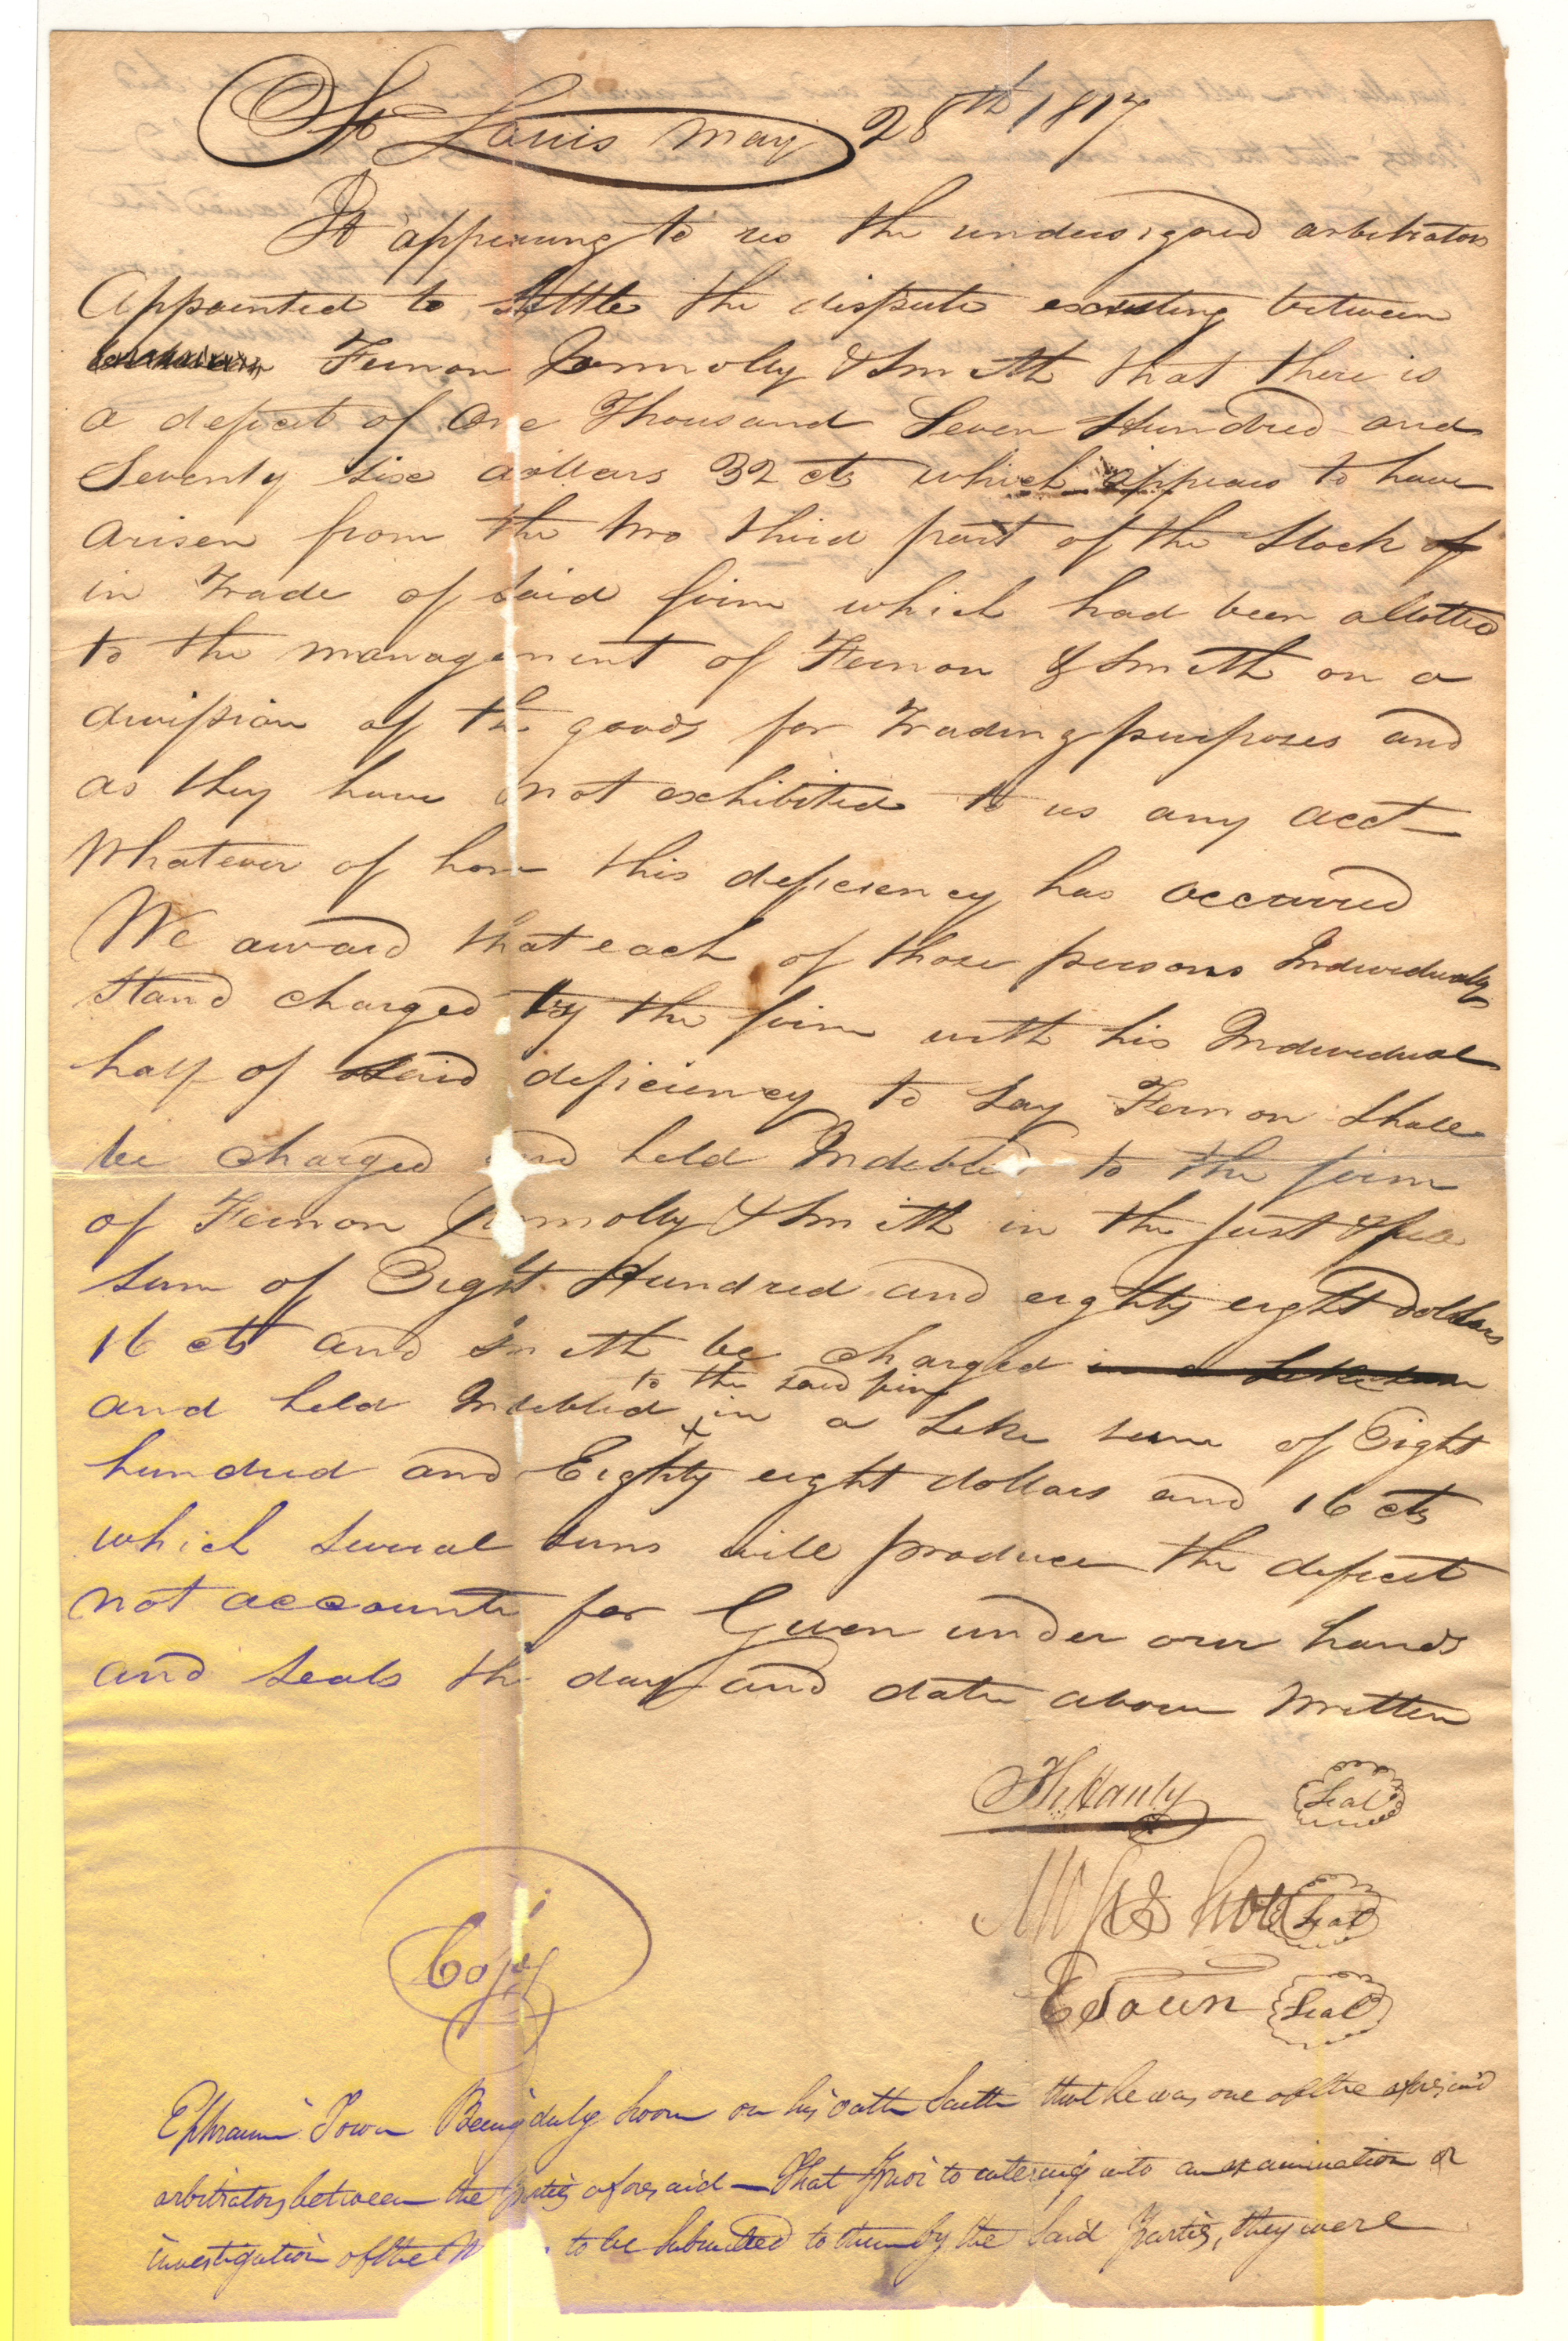 St Louis May 28th 1817
It appearing to us the undersigned arbitrators
Appointed to Settle the dispute existing between
Fernon Connolly & Smith that there is
a deficit of One Thousand Seven Hundred and
Seventy Six dollars 32 cts which appears to have
arisen from the two third part of the Stock of
in Trade of Said firm which had been allotted
to the management of Fernon & Smith on a
division of the goods for Trading purposes and
as they have not exhibited to us any acct
Whatever of how this deficiency has occurred
We award that each of those persons Individualy
Stand charged by the firm with his Individual
half of Said deficiency to Say Fernon Shall
be charged and held Indebted to the firm
of Fernon Connolly & Smith in the just & full
Sum of Eight Hundred and eighty eight Dollars
16 cts and Smith be charged in a like sum
to the said firm
and held Indebted in a like sum of Eight
hundred and Eighty eight dollars and 16 cts
which several sums will produce the deficit
not accounted for Given under our hands
and Seals the day and date above Written
Th Hanly Seal
Seal
E Town Seal
Copy
Ephraim Town Being duly Sworn on his oath Saith that he was one of the aforesaid
arbitrators between the parties aforesaid — That prior to entering into an examination or
investigation of the to be Submitted to them by the Said Parties, they were